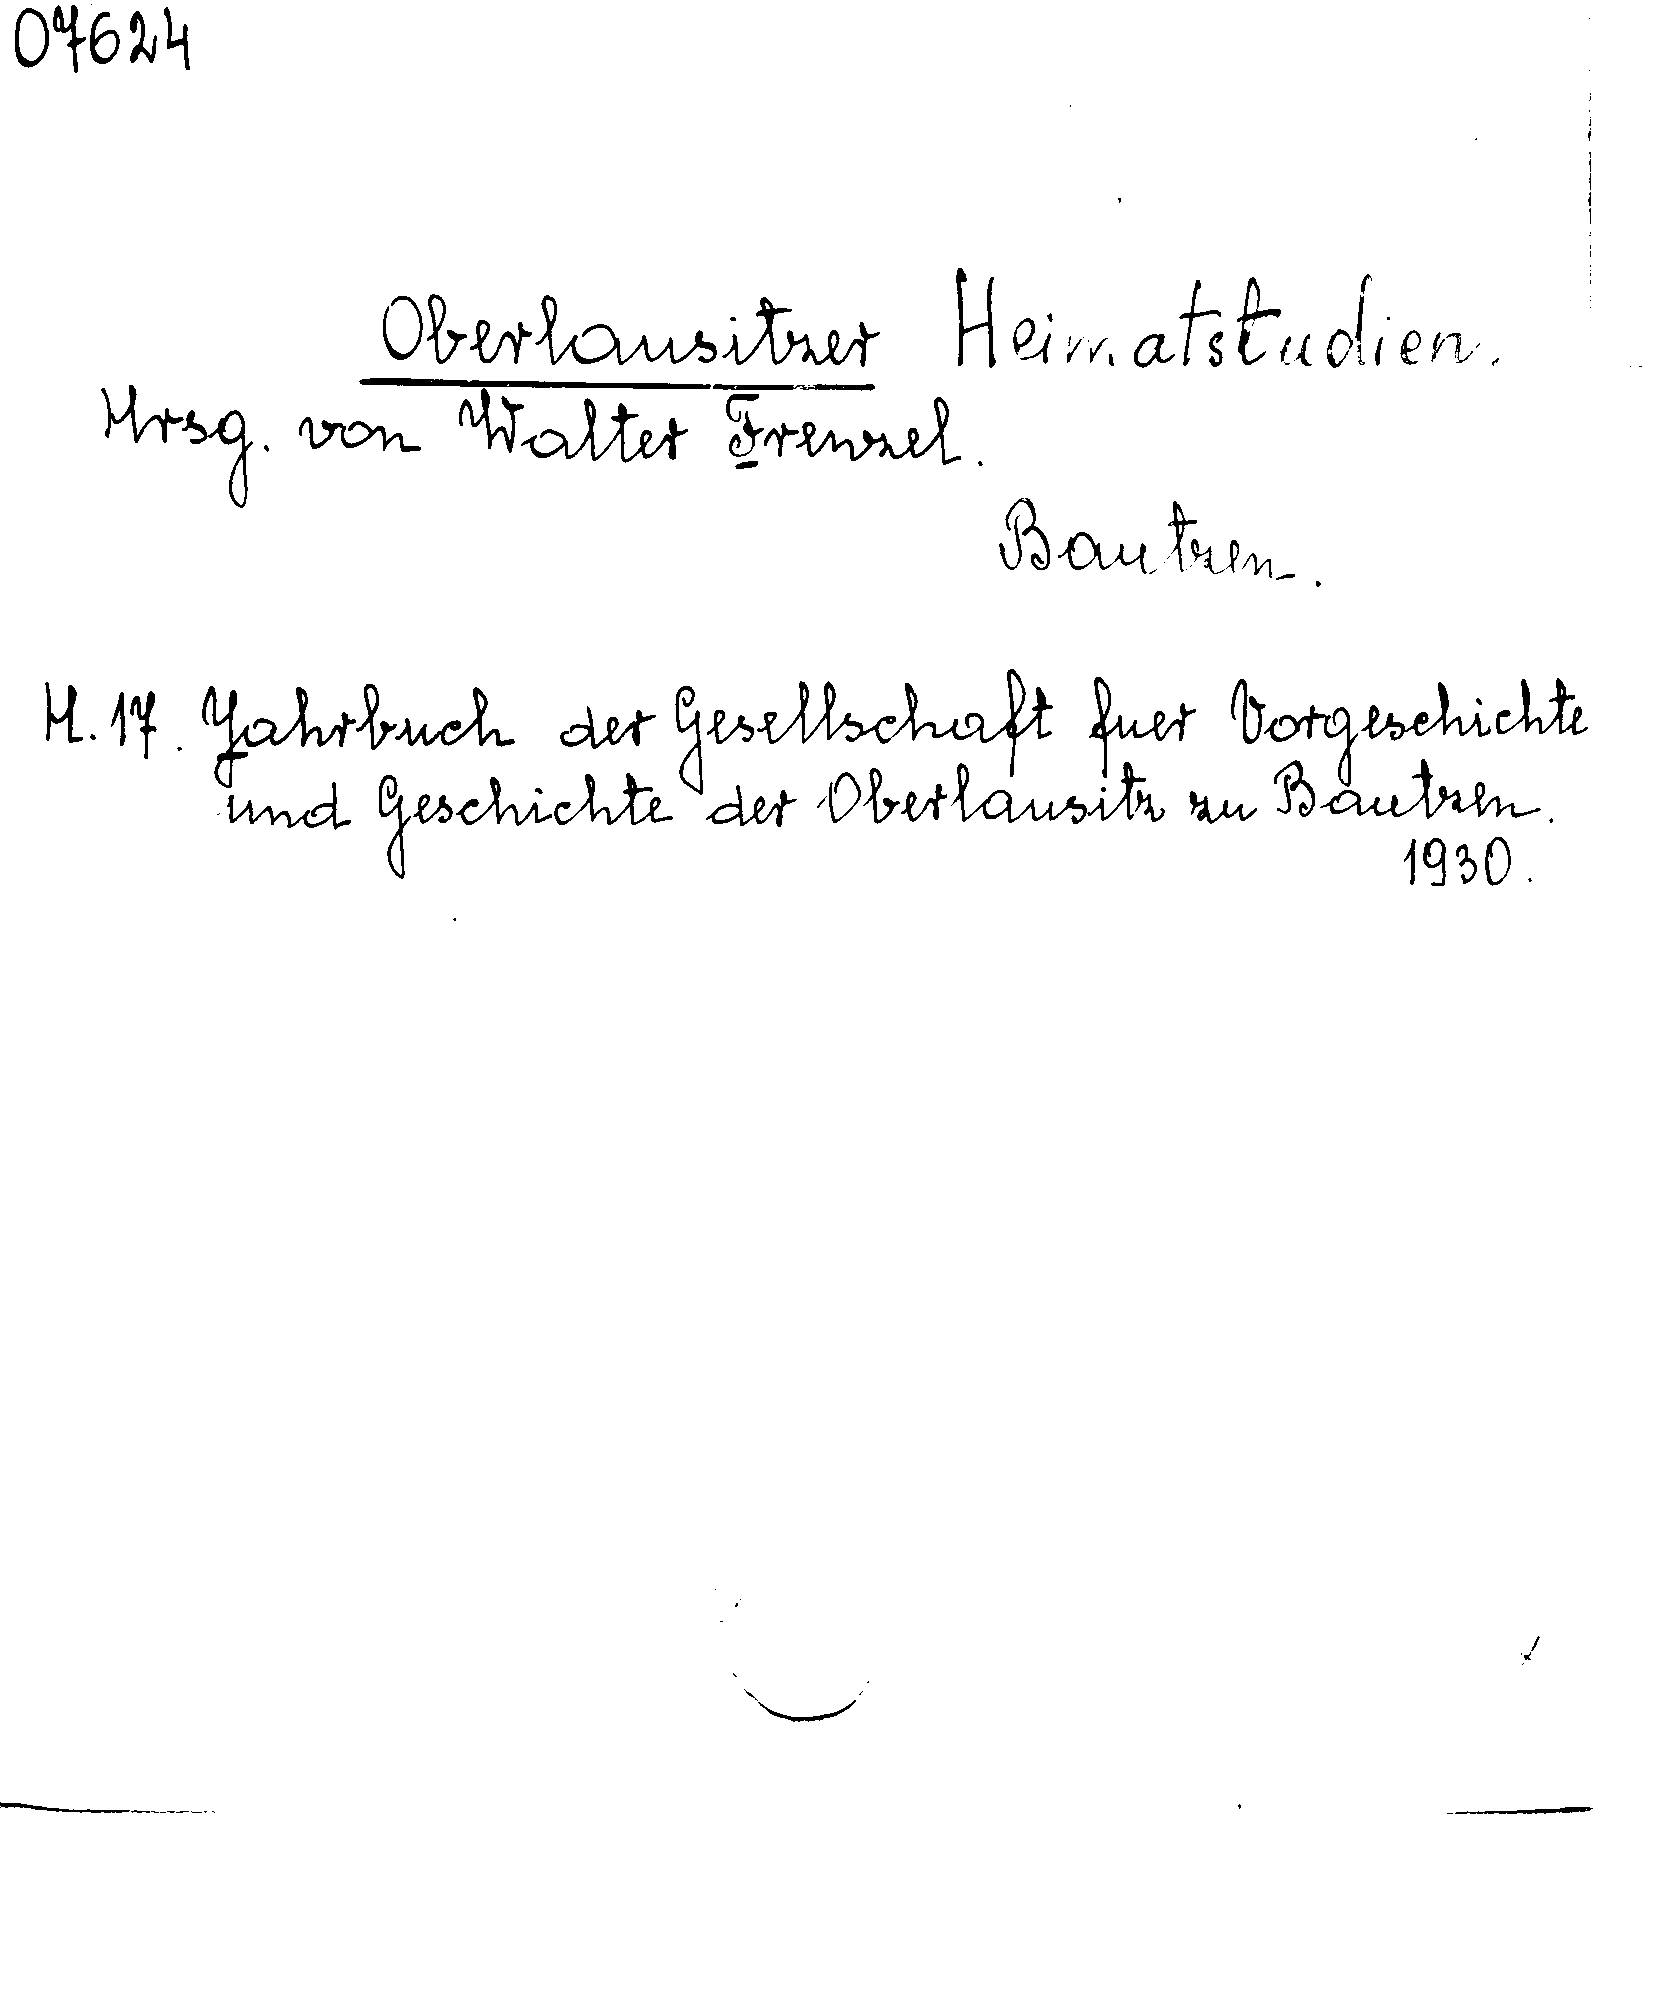 07624
Oberlausitzer Heimatstudien.
Hrsg. von Walter Frenzel.
Bautzen.
H. 17. Jahrbuch der Gesellschaft fuer Vorgeschichte
und Geschichte der Oberlausitz zu Bautzen.
1930.